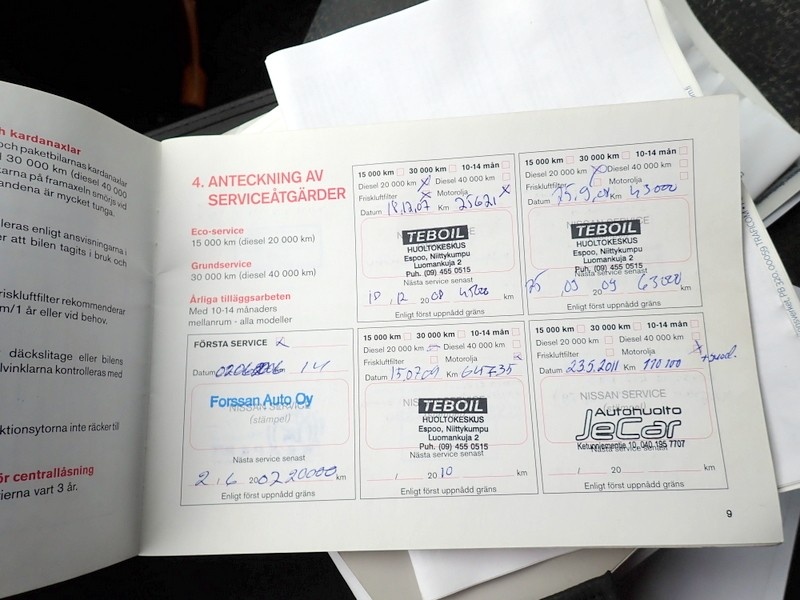 h kardanaxlar
och paketbilarnas kardanaxlar
30 000 km (diesel 40 000
karna på framaxeln smörjs vid
andena är mycket tunga.
leras enligt anvisningarna i
er att bilen tagits i bruk och
riskluftfilter rekommenderar
m/1 år eller vid behov.
däckslitage eller bilens
lvinklarna kontrolleras med
ktionsytorna inte räcker till
ör centrallåsning
ierna vart 3 år.
4. ANTECKNING AV
SERVICEÅTGÄRDER
Eco-service
15 000 km (diesel 20 000 km)
Grundservice
30 000 km (diesel 40 000 km)
Årliga tilläggsarbeten
Med 10-14 månaders
mellanrum - alla modeller
15 000 km 30 000 km 10-14 mån
Diesel 20 000 km X Diesel 40 000 km
Friskluftfilter X Motorolja X
Datum 18.12.07 Km 25621
NISSAN SERVICE
TEBOIL
HUOLTOKESKUS
Espoo, Niittykumpu
Luomankuja 2
Puh. (09) 455 0515
Nästa service senast
18 . 12 20 08 45000 km
Enligt först uppnådd gräns
15 000 km 30 000 km 10-14 mån
Diesel 20 000 km X Diesel 40 000 km
Friskluftfilter Motorolja
Datum Km 43000
NISSAN SERVICE
TEBOIL
HUOLTOKESKUS
Espoo, Niittykumpu
Luomankuja 2
Puh. (09) 455 0515
Nästa service senast
25 09 20 09 63000 km
Enligt först uppnådd gräns
FÖRSTA SERVICE X
Datum
Forssan Auto Oy
NISSAN SERVICE
(stämpel)
Nästa service senast
2 . 6 20 07 20000 km
Enligt först uppnådd gräns
15 000 km 30 000 km 10-14 mån
Diesel 20 000 km Diesel 40 000 km
Friskluftfilter Motorolja X
Datum 15.07.09 Km 64735
NISSAN SERVICE
TEBOIL
HUOLTOKESKUS
Espoo, Niittykumpu
Luomankuja 2
Puh. (09) 455 0515
Nästa service senast
/ 20 10 km
Enligt först uppnådd gräns
15 000 km 30 000 km 10-14 mån
Diesel 20 000 km Diesel 40 000 km
Friskluftfilter Motorolja X
Datum 23.5.2011 Km 110 100
NISSAN SERVICE
(stämpel)
Autohuolto
JeCar
Ketunniementie 10, 040 195 7707
Nästa service senast
/ 20 km
Enligt först uppnådd gräns
9
00059 TRAFICOM